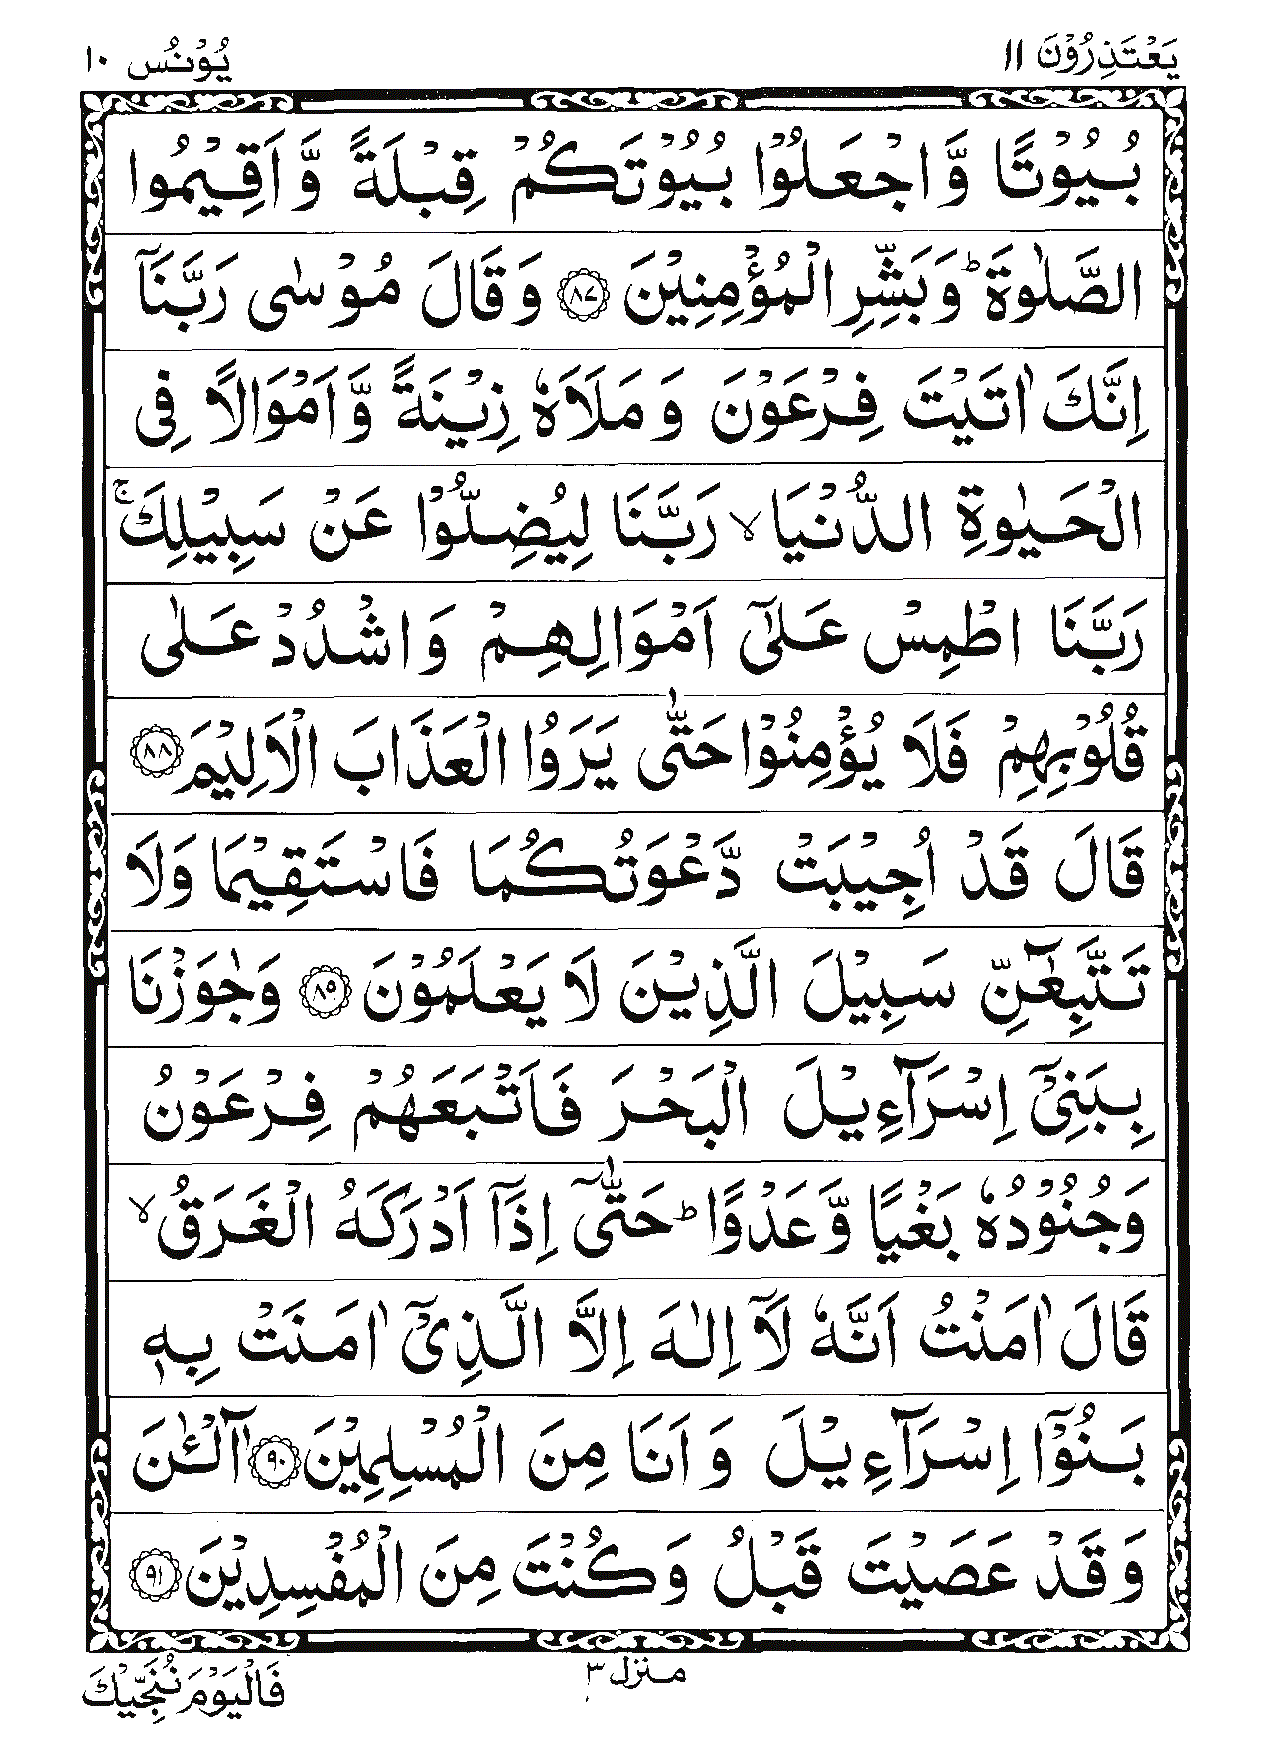 يَعْتَذِرُوْنَ ١١
يُوْنُس ١٠
بُيُوْتًا وَّاجْعَلُوْا بُيُوْتَكُمْ قِبْلَةً وَّاَقِيْمُوا
الصَّلٰوةَ ؕ وَبَشِّرِ الْمُؤْمِنِيْنَ ﴿٨٧﴾ وَقَالَ مُوْسٰى رَبَّنَاۤ
اِنَّكَ اٰتَيْتَ فِرْعَوْنَ وَمَلَاَهٗ زِيْنَةً وَّاَمْوَالًا فِى
الْحَيٰوةِ الدُّنْيَا ۙ رَبَّنَا لِيُضِلُّوْا عَنْ سَبِيْلِكَ ۚ
رَبَّنَا اطْمِسْ عَلٰٓى اَمْوَالِهِمْ وَاشْدُدْ عَلٰى
قُلُوْبِهِمْ فَلَا يُؤْمِنُوْا حَتّٰى يَرَوُا الْعَذَابَ الْاَلِيْمَ ﴿٨٨﴾
قَالَ قَدْ اُجِيْبَتْ دَّعْوَتُكُمَا فَاسْتَقِيْمَا وَلَا
تَتَّبِعٰٓنِّ سَبِيْلَ الَّذِيْنَ لَا يَعْلَمُوْنَ ﴿٨٩﴾ وَجٰوَزْنَا
بِبَنِىْۤ اِسْرَآءِيْلَ الْبَحْرَ فَاَتْبَعَهُمْ فِرْعَوْنُ
وَجُنُوْدُهٗ بَغْيًا وَّعَدْوًا ؕ حَتّٰۤى اِذَاۤ اَدْرَكَهُ الْغَرَقُ ۙ
قَالَ اٰمَنْتُ اَنَّهٗ لَاۤ اِلٰهَ اِلَّا الَّذِىْۤ اٰمَنَتْ بِهٖ
بَنُوْۤا اِسْرَآءِيْلَ وَاَنَا مِنَ الْمُسْلِمِيْنَ ﴿٩٠﴾ آٰلْـٰٔنَ
وَقَدْ عَصَيْتَ قَبْلُ وَكُنْتَ مِنَ الْمُفْسِدِيْنَ ﴿٩١﴾
منزل ٣
فَالْيَوْمَ نُنَجِّيْكَ